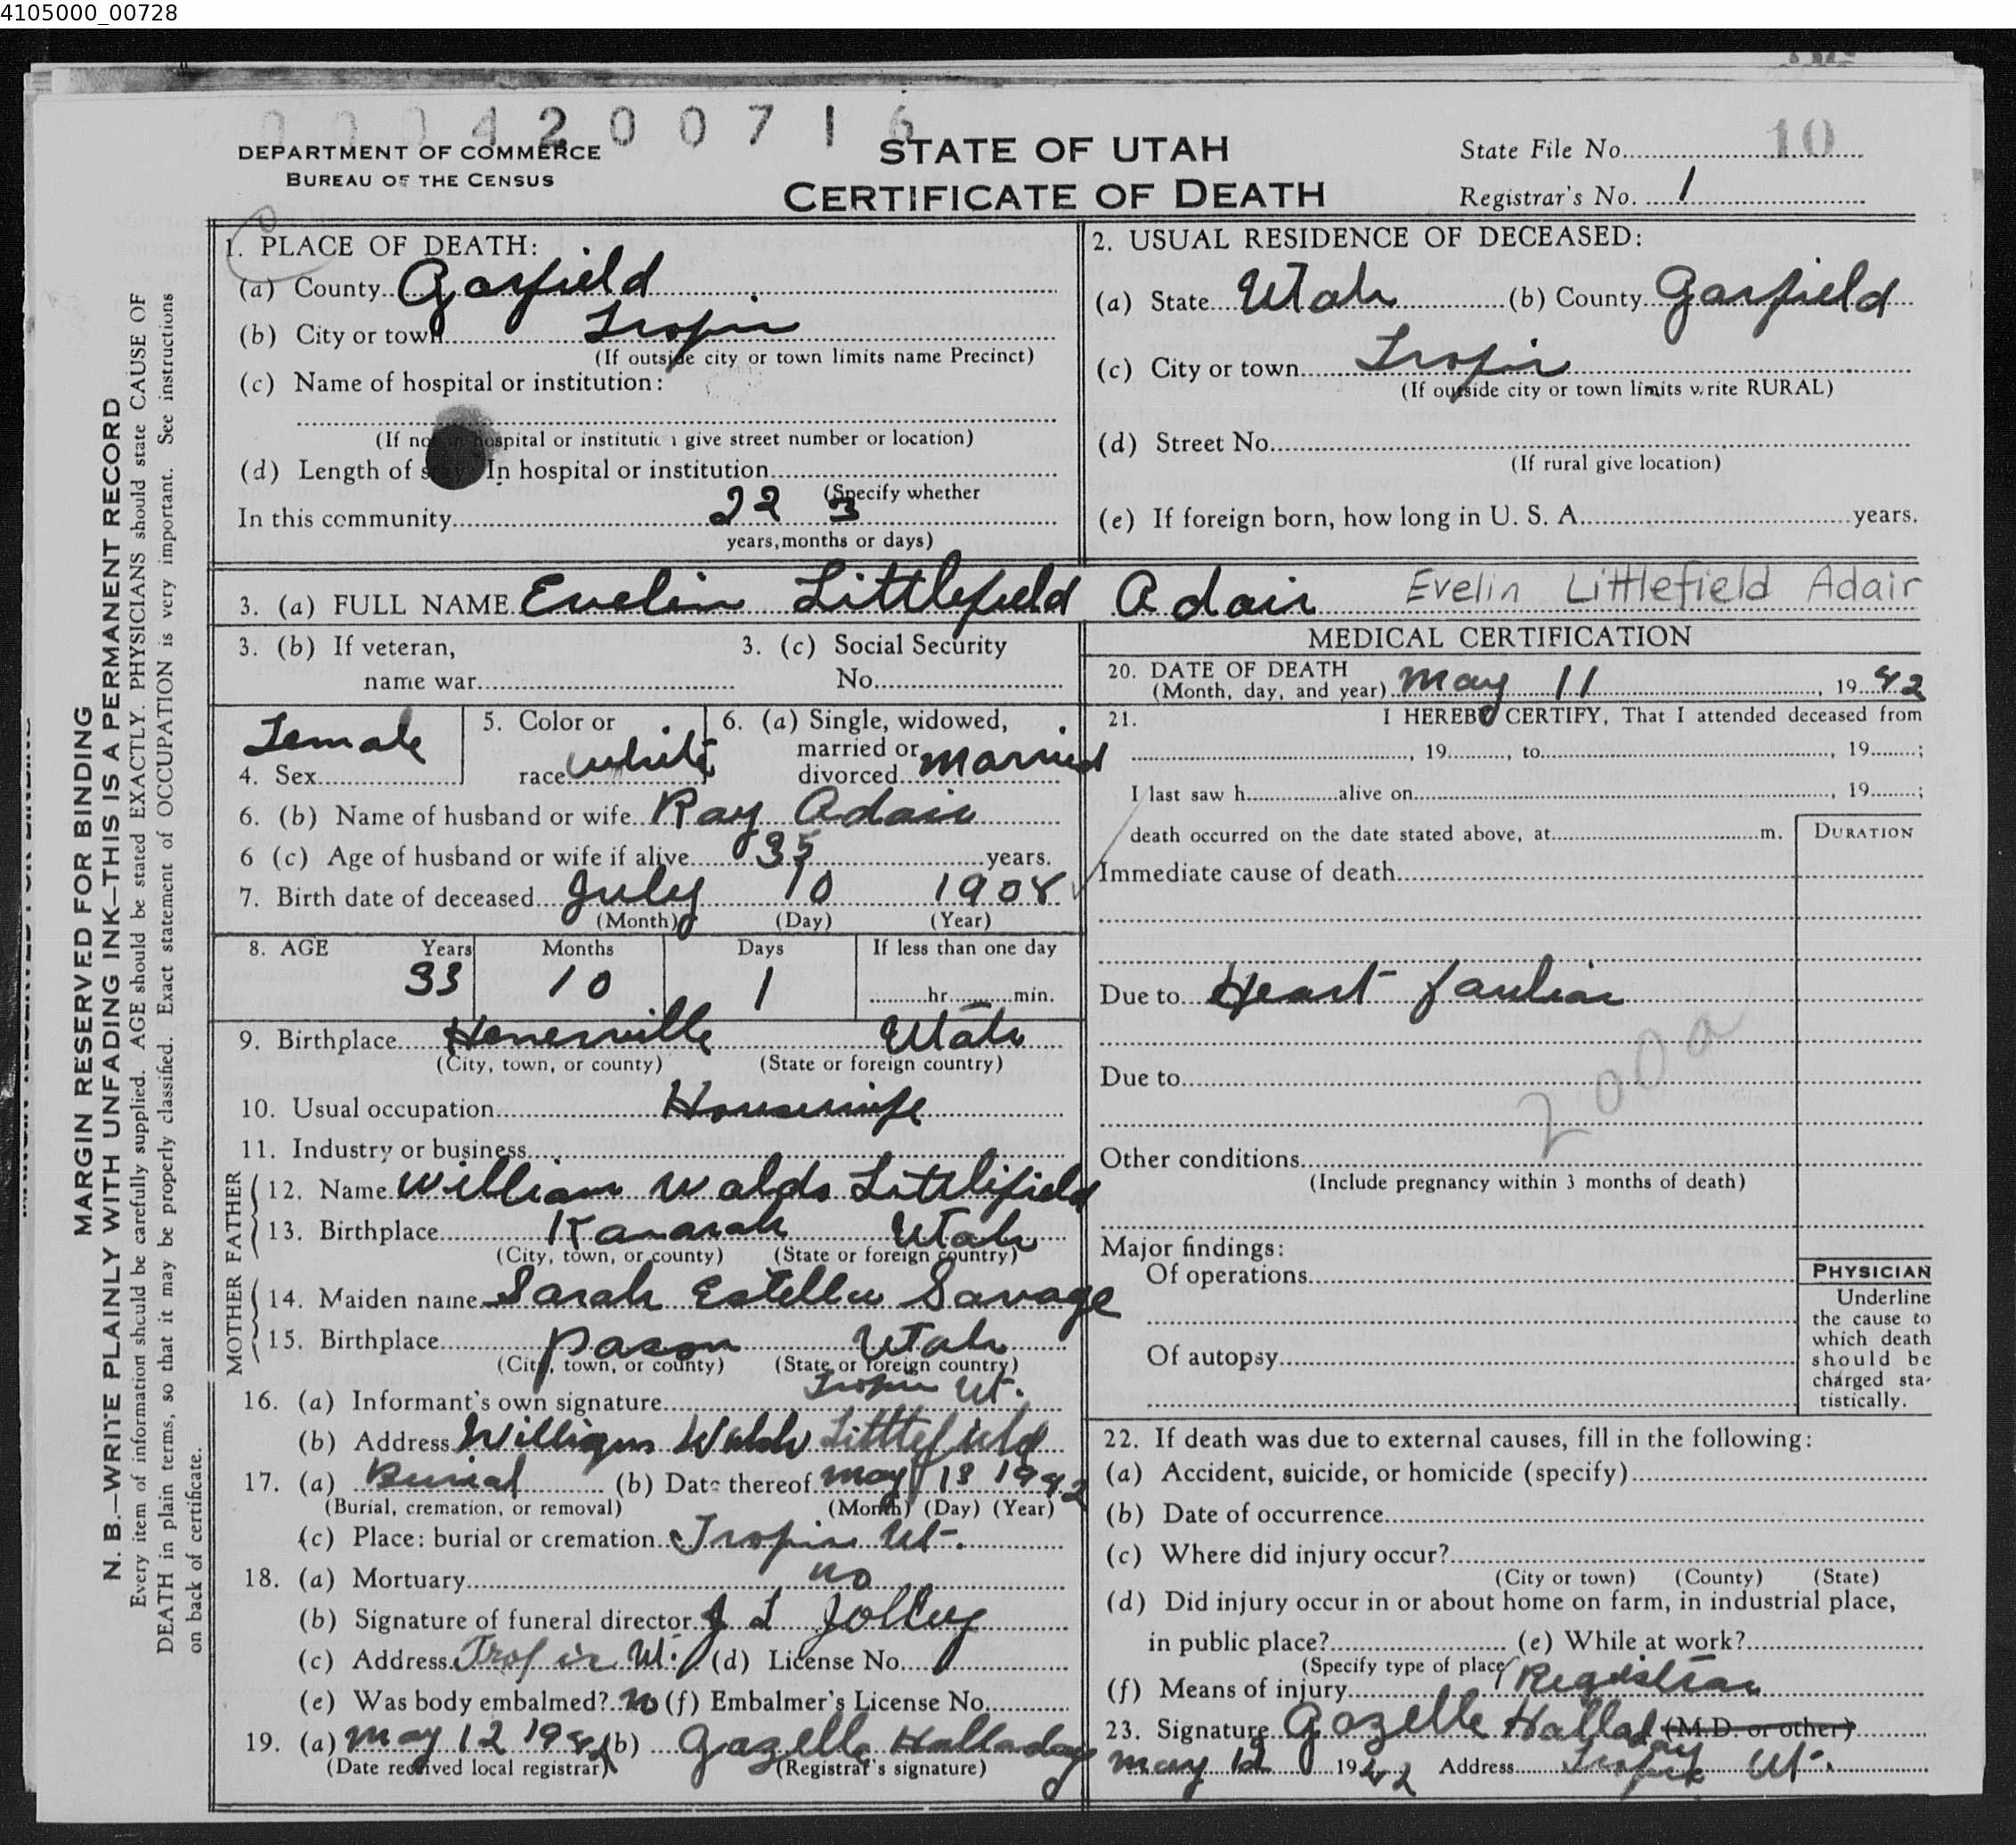 4105000_00728
0004200716
DEPARTMENT OF COMMERCE
BUREAU OF THE CENSUS
STATE OF UTAH
CERTIFICATE OF DEATH
State File No. 10
Registrar's No. 1
MARGIN RESERVED FOR BINDING
N. B.—WRITE PLAINLY WITH UNFADING INK—THIS IS A PERMANENT RECORD
Every item of information should be carefully supplied. AGE should be stated EXACTLY. PHYSICIANS should state CAUSE OF
DEATH in plain terms, so that it may be properly classified. Exact statement of OCCUPATION is very important. See instructions
on back of certificate.
1. PLACE OF DEATH:
(a) County Garfield
(b) City or town Tropic
(If outside city or town limits name Precinct)
(c) Name of hospital or institution:
(If not in hospital or institution give street number or location)
(d) Length of stay: In hospital or institution
(Specify whether
In this community 22 3
years, months or days)
2. USUAL RESIDENCE OF DECEASED:
(a) State Utah (b) County Garfield
(c) City or town Tropic
(If outside city or town limits write RURAL)
(d) Street No.
(If rural give location)
(e) If foreign born, how long in U. S. A. years.
3. (a) FULL NAME Evelin Littlefield Adair Evelin Littlefield Adair
3. (b) If veteran,
name war
3. (c) Social Security
No.
4. Sex Female
5. Color or
race white
6. (a) Single, widowed,
married or
divorced married
6. (b) Name of husband or wife Ray Adair
6 (c) Age of husband or wife if alive 35 years.
7. Birth date of deceased July 10 1908
(Month) (Day) (Year)
8. AGE Years Months Days If less than one day
33 10 1 hr. min.
9. Birthplace Henerville Utah
(City, town, or county) (State or foreign country)
10. Usual occupation Housewife
11. Industry or business
FATHER
12. Name William Waldo Littlifield
13. Birthplace Kanarah Utah
(City, town, or county) (State or foreign country)
MOTHER
14. Maiden name Sarah Estella Savage
15. Birthplace Pason Utah
(City, town, or county) (State or foreign country)
16. (a) Informant's own signature Tropic Ut.
(b) Address William Waldo Littlefield
17. (a) Burial (b) Date thereof may 13 1942
(Burial, cremation, or removal) (Month) (Day) (Year)
(c) Place: burial or cremation Tropic Ut.
18. (a) Mortuary no
(b) Signature of funeral director J L Jolley
(c) Address Tropic Ut. (d) License No.
(e) Was body embalmed? no (f) Embalmer's License No.
19. (a) may 12 1942 (b) Gazella Halladay
(Date received local registrar) (Registrar's signature)
MEDICAL CERTIFICATION
20. DATE OF DEATH
(Month, day, and year) may 11, 1942
21. I HEREBY CERTIFY, That I attended deceased from
, 19 , to , 19 ;
I last saw h alive on , 19 ;
death occurred on the date stated above, at m.
DURATION
Immediate cause of death
Due to Heart fauliar
Due to
200a
Other conditions
(Include pregnancy within 3 months of death)
Major findings:
Of operations
Of autopsy
PHYSICIAN
Underline
the cause to
which death
should be
charged sta-
tistically.
22. If death was due to external causes, fill in the following:
(a) Accident, suicide, or homicide (specify)
(b) Date of occurrence
(c) Where did injury occur?
(City or town) (County) (State)
(d) Did injury occur in or about home on farm, in industrial place,
in public place? (e) While at work?
(Specify type of place)
(f) Means of injury Registrar
23. Signature Gazelle Halladay (M.D. or other)
may 12 1942 Address Tropic Ut.